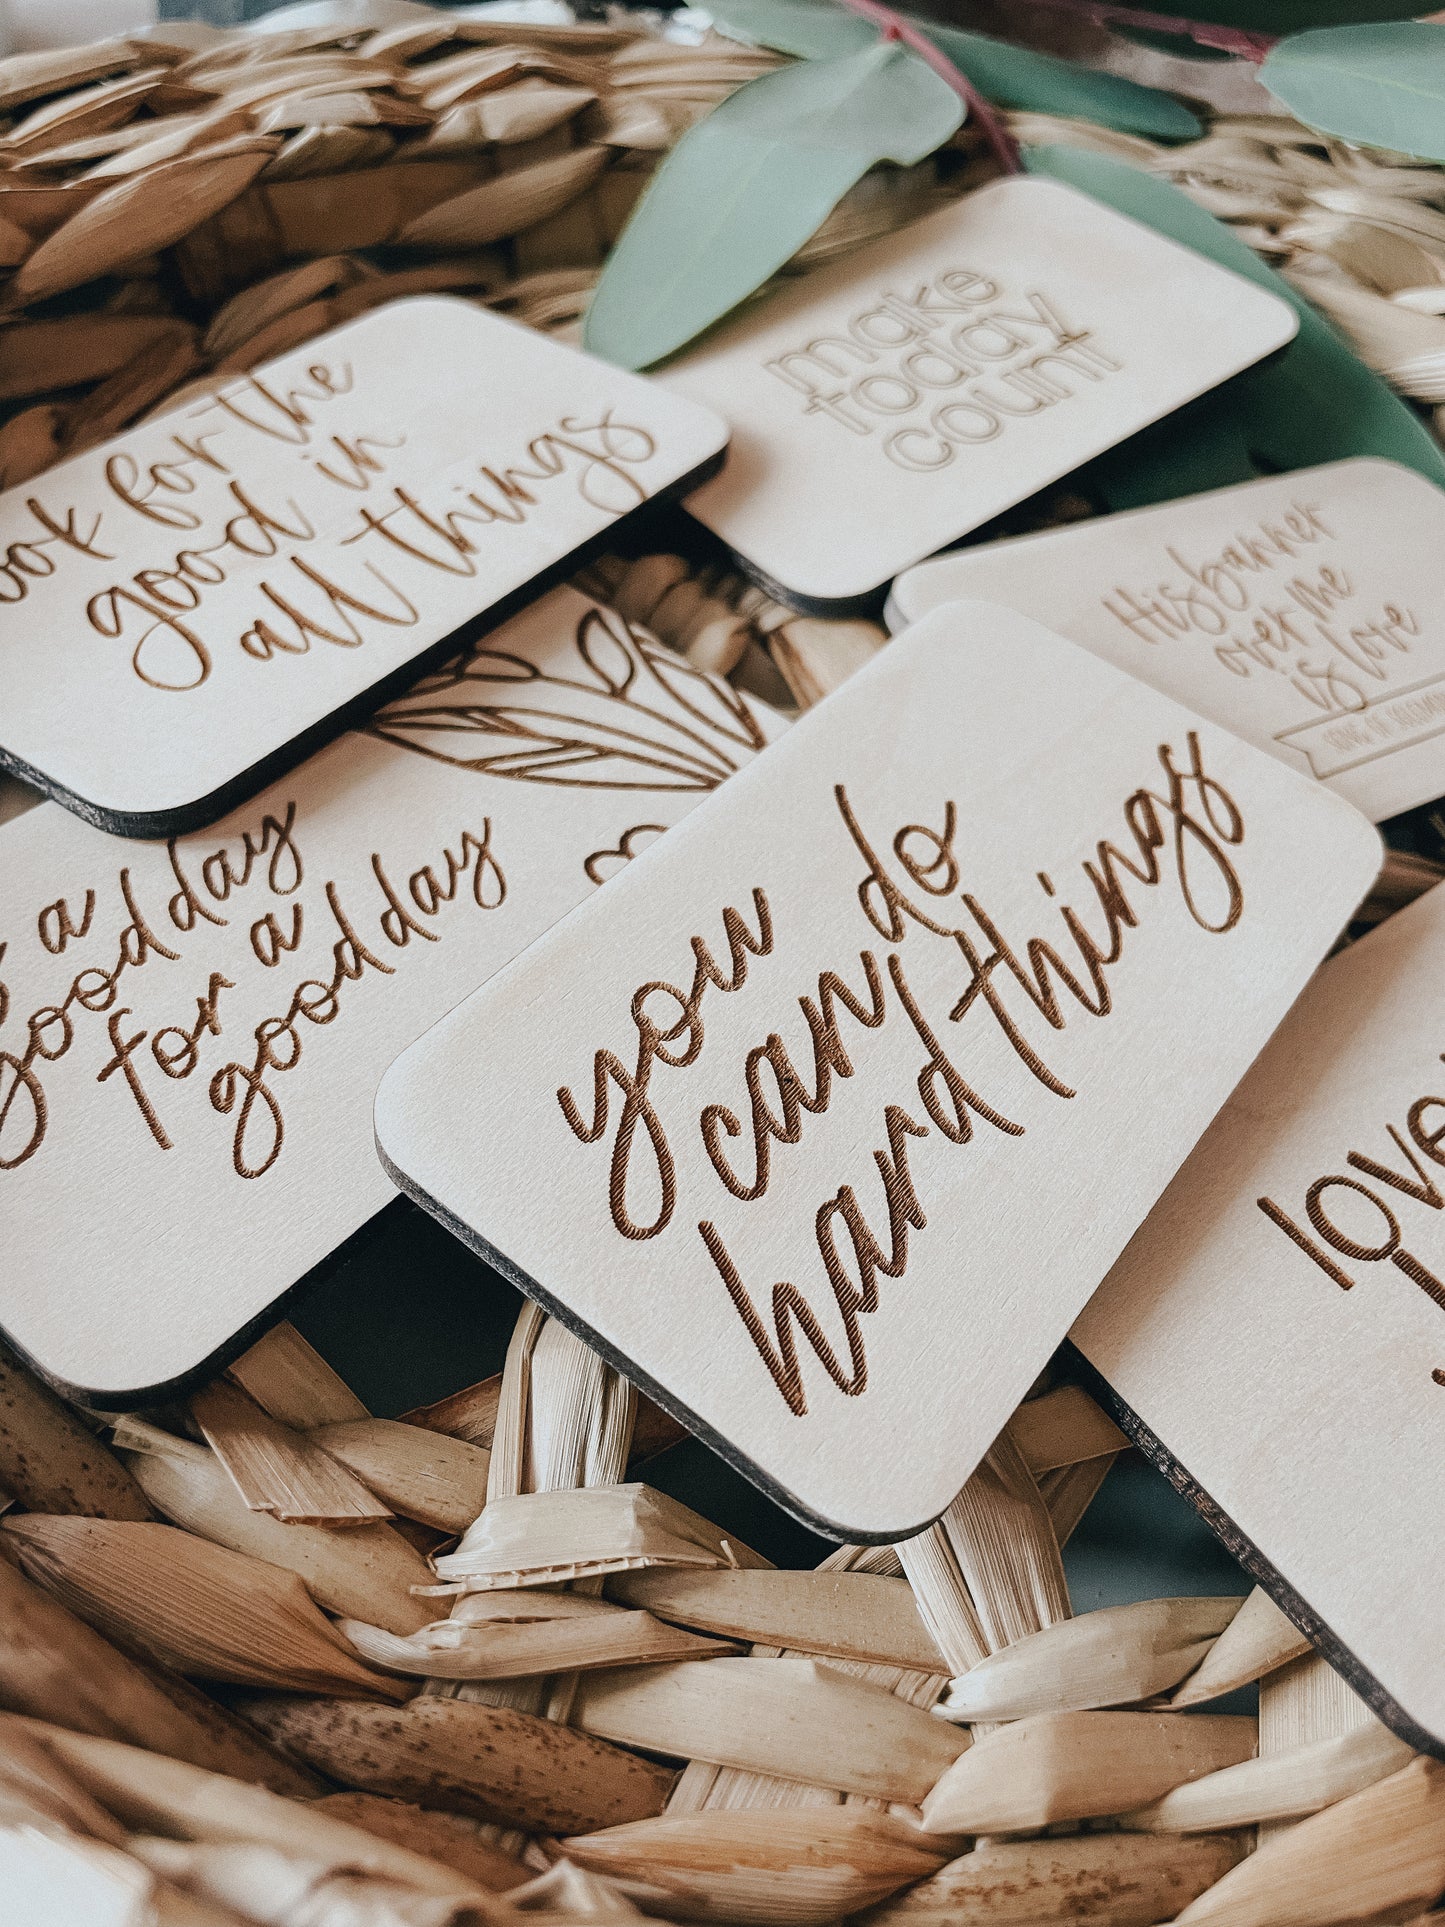 make
today
count
look for the
good in
all things
His banner
over me
is love
SONG OF SOLOMON
a
good day
for a
good day
you
can do
hard things